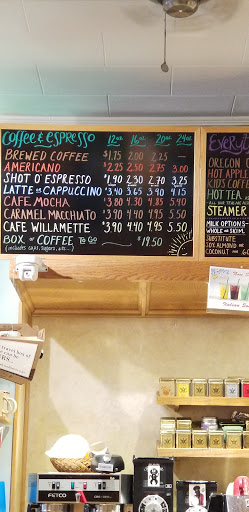 Coffee & Espresso 12oz. 16oz. 20oz. 24oz.
BREWED COFFEE $1.75 2.00 2.25 —
AMERICANO $2.25 2.50 2.75 3.00
SHOT O' ESPRESSO $1.90 2.30 2.70 3.25
LATTE OR CAPPUCCINO $3.40 3.65 3.90 4.15
CAFE MOCHA $3.80 4.30 4.85 5.40
CARAMEL MACCHIATO $3.90 4.40 4.95 5.50
CAFE WILLAMETTE $3.90 4.40 4.95 5.50
BOX OF COFFEE TO GO $19.50
(includes cups, sugars, etc...)
OREGON
HOT APPLE
KIDS COFFEE
HOT TEA
STEAMER
MILK OPTIONS
WHOLE OR SKIM
SUBSTITUTE
SOY, ALMOND OR
COCONUT
Italian
FETCO